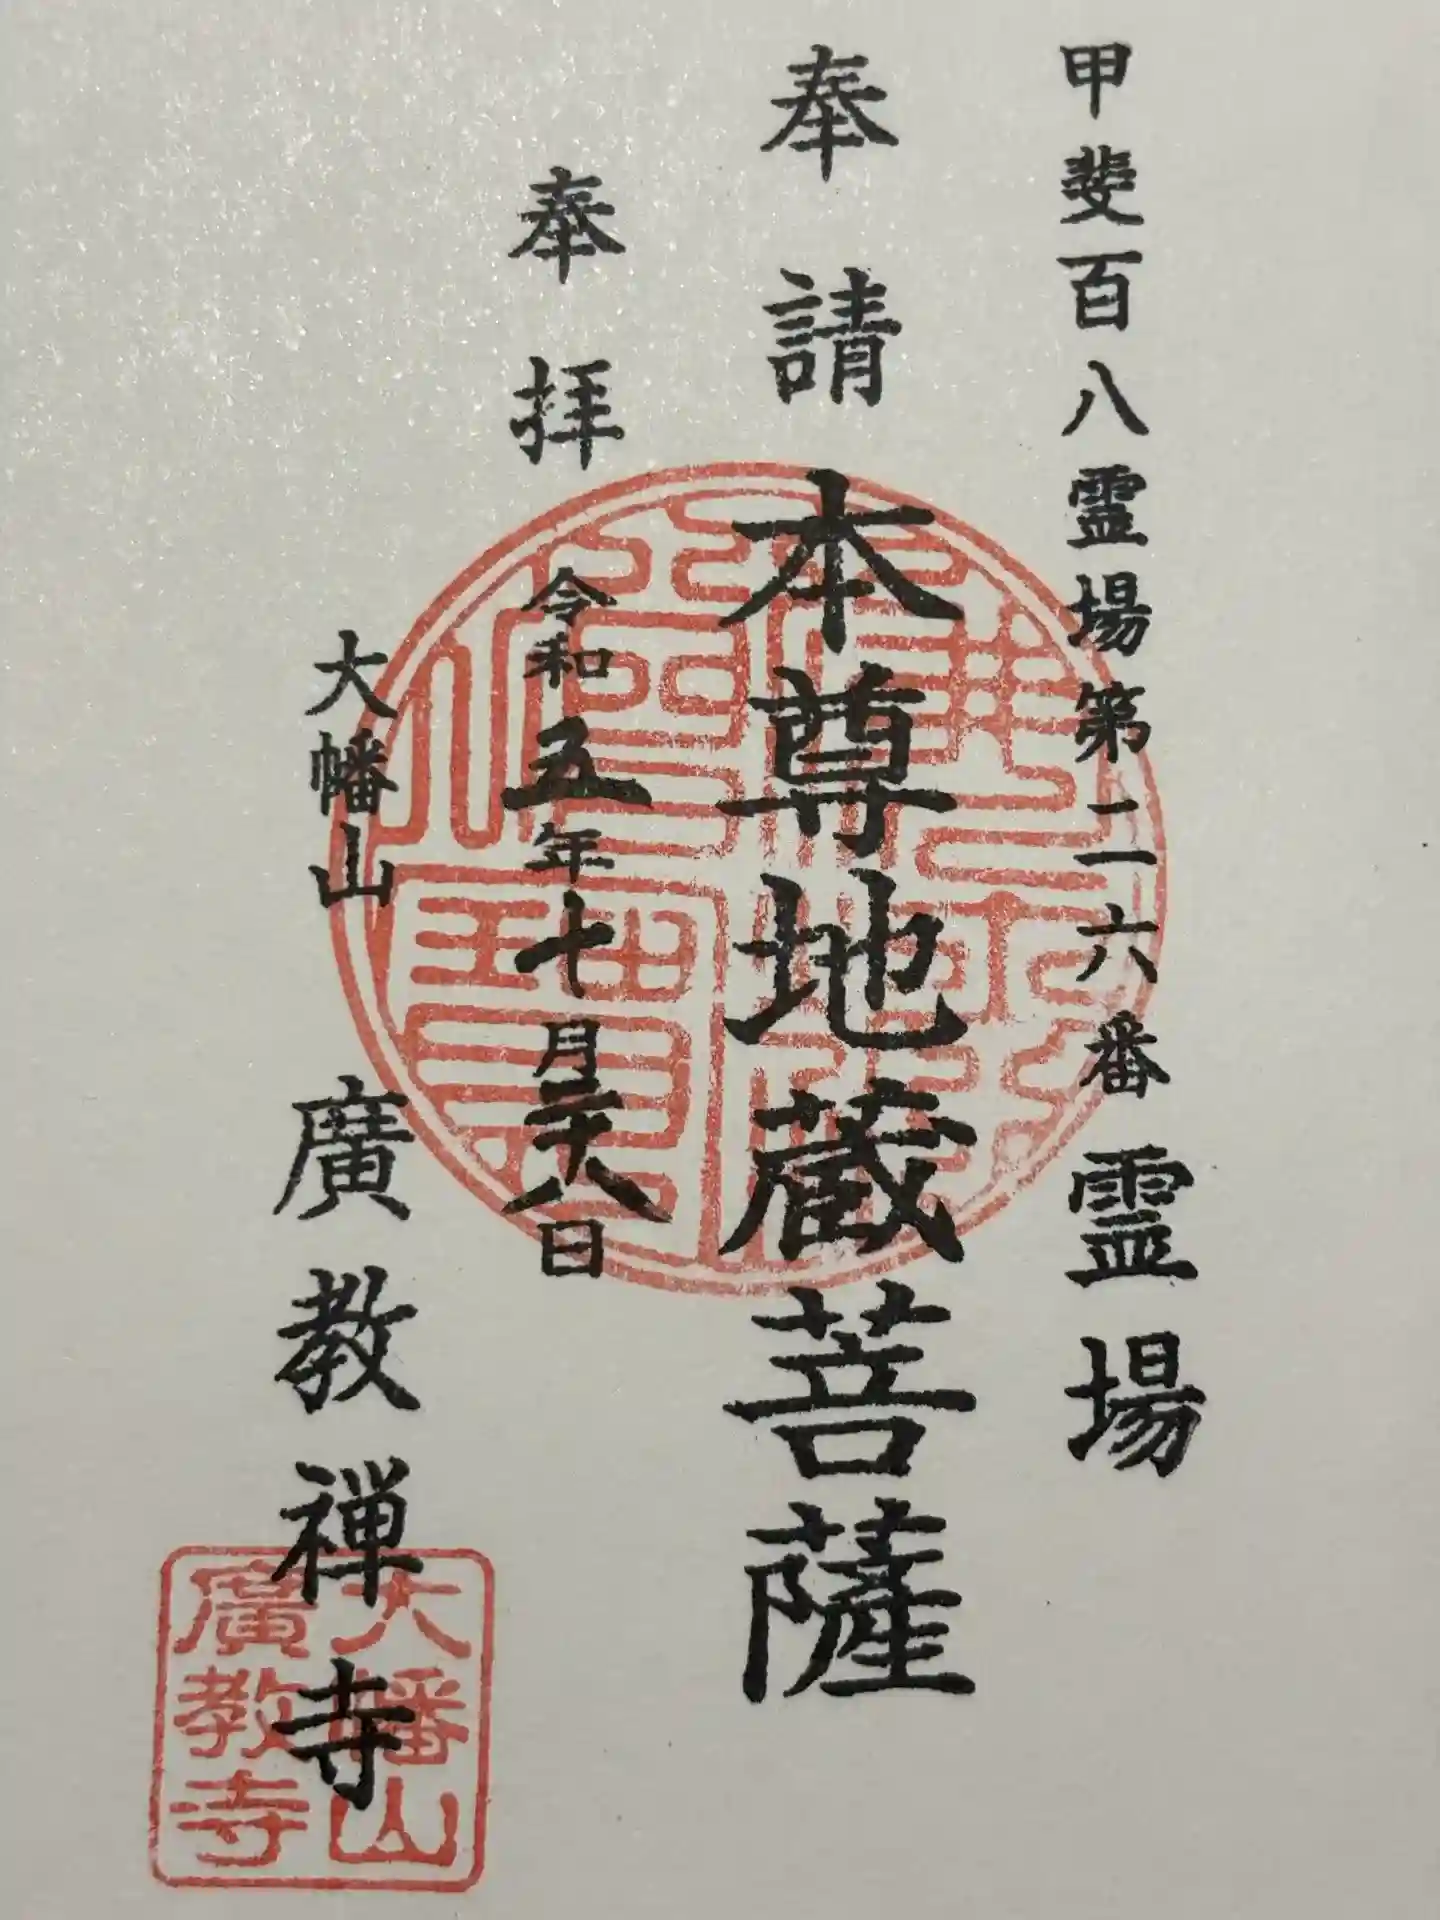 甲斐百八霊場第二六番霊場
奉請 本尊地蔵菩薩
奉拝 令和五年十月二十八日
大幡山 廣教禅寺
大幡山
廣教寺